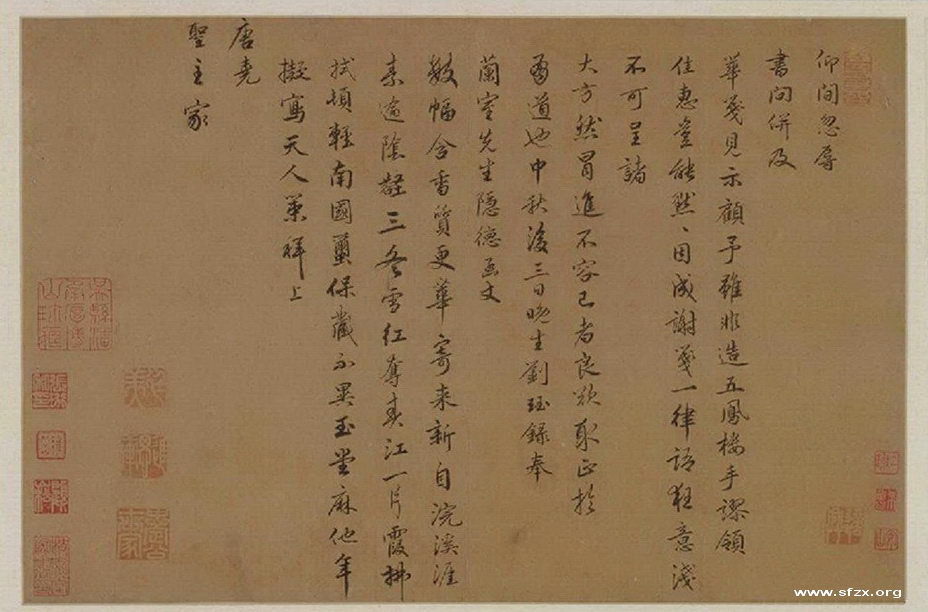 仰間忽辱
書問併及
華箋見示顧予雖非造五鳳樓手謬領
佳惠豈能默〻因成謝箋一律語狂意淺
不可呈諸
大方然冒進不容已者良欲取正於
有道也中秋後三日晚生劉珏錄奉
蘭室先生隱德函丈
數幅含香質更華寄來新自浣溪涯
素逾陰壑三冬雪紅奪春江一片霞拂
拭頓輕南國繭保藏不異玉堂麻他年
擬寫天人策拜上
唐堯
聖主家
www.sfzx.org